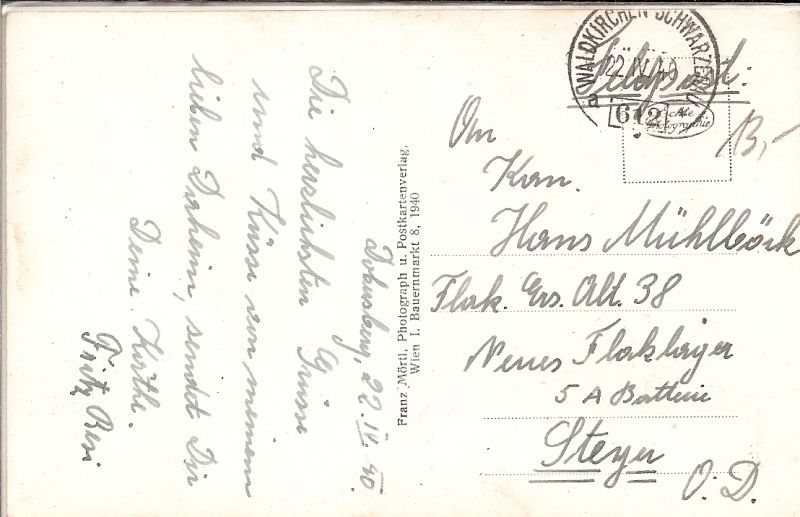 Dobersberg, 22.IV.40.
Die herzlichsten Grüsse
und Küsse von meinem
lieben Daheim, sendet Dir
Deine Käthe.
Fritz Resi
Franz Mörtl, Photograph u. Postkartenverlag.
Wien I. Bauernmarkt 8, 1940
WALDKIRCHEN SCHWARZENAU
22.IV.40
a 612 *
Feldpost:
Echte Photographie
13,-
An
Kan.
Hans Mühlböck
Flak. Ers. Abt. 38
Neues Flaklager
5 A Batterie
Steyer
O.D.